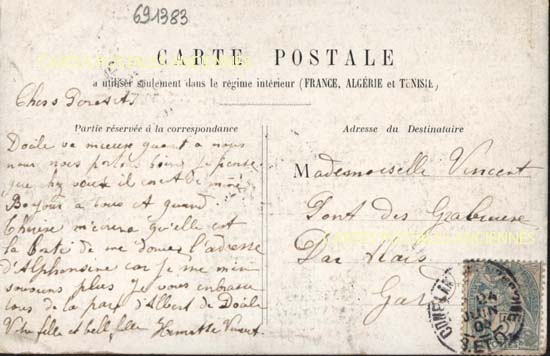 691383
CARTE POSTALE
a utiliser seulement dans le régime intérieur (FRANCE, ALGÉRIE et TUNISIE)
CARTES POSTALES ANCIENNES
Chers
Partie réservée à la correspondance
Adresse du Destinataire
va mieux quant a nous
nous nous portons bien je pense
que chez vous il en et de même
Bonjour a tous et quand
m'ecrira qu'elle est
la bonté de me donner l'adresse
d'Alphonsine car je me m'en
souviens plus Je vous embrasse
tous de la part d'Albert de
Votre fille et belle fille Vincent
Mademoiselle Vincent
Pont des
Par Alais
Gard
CARTES POSTALES ANCIENNES
JUIN